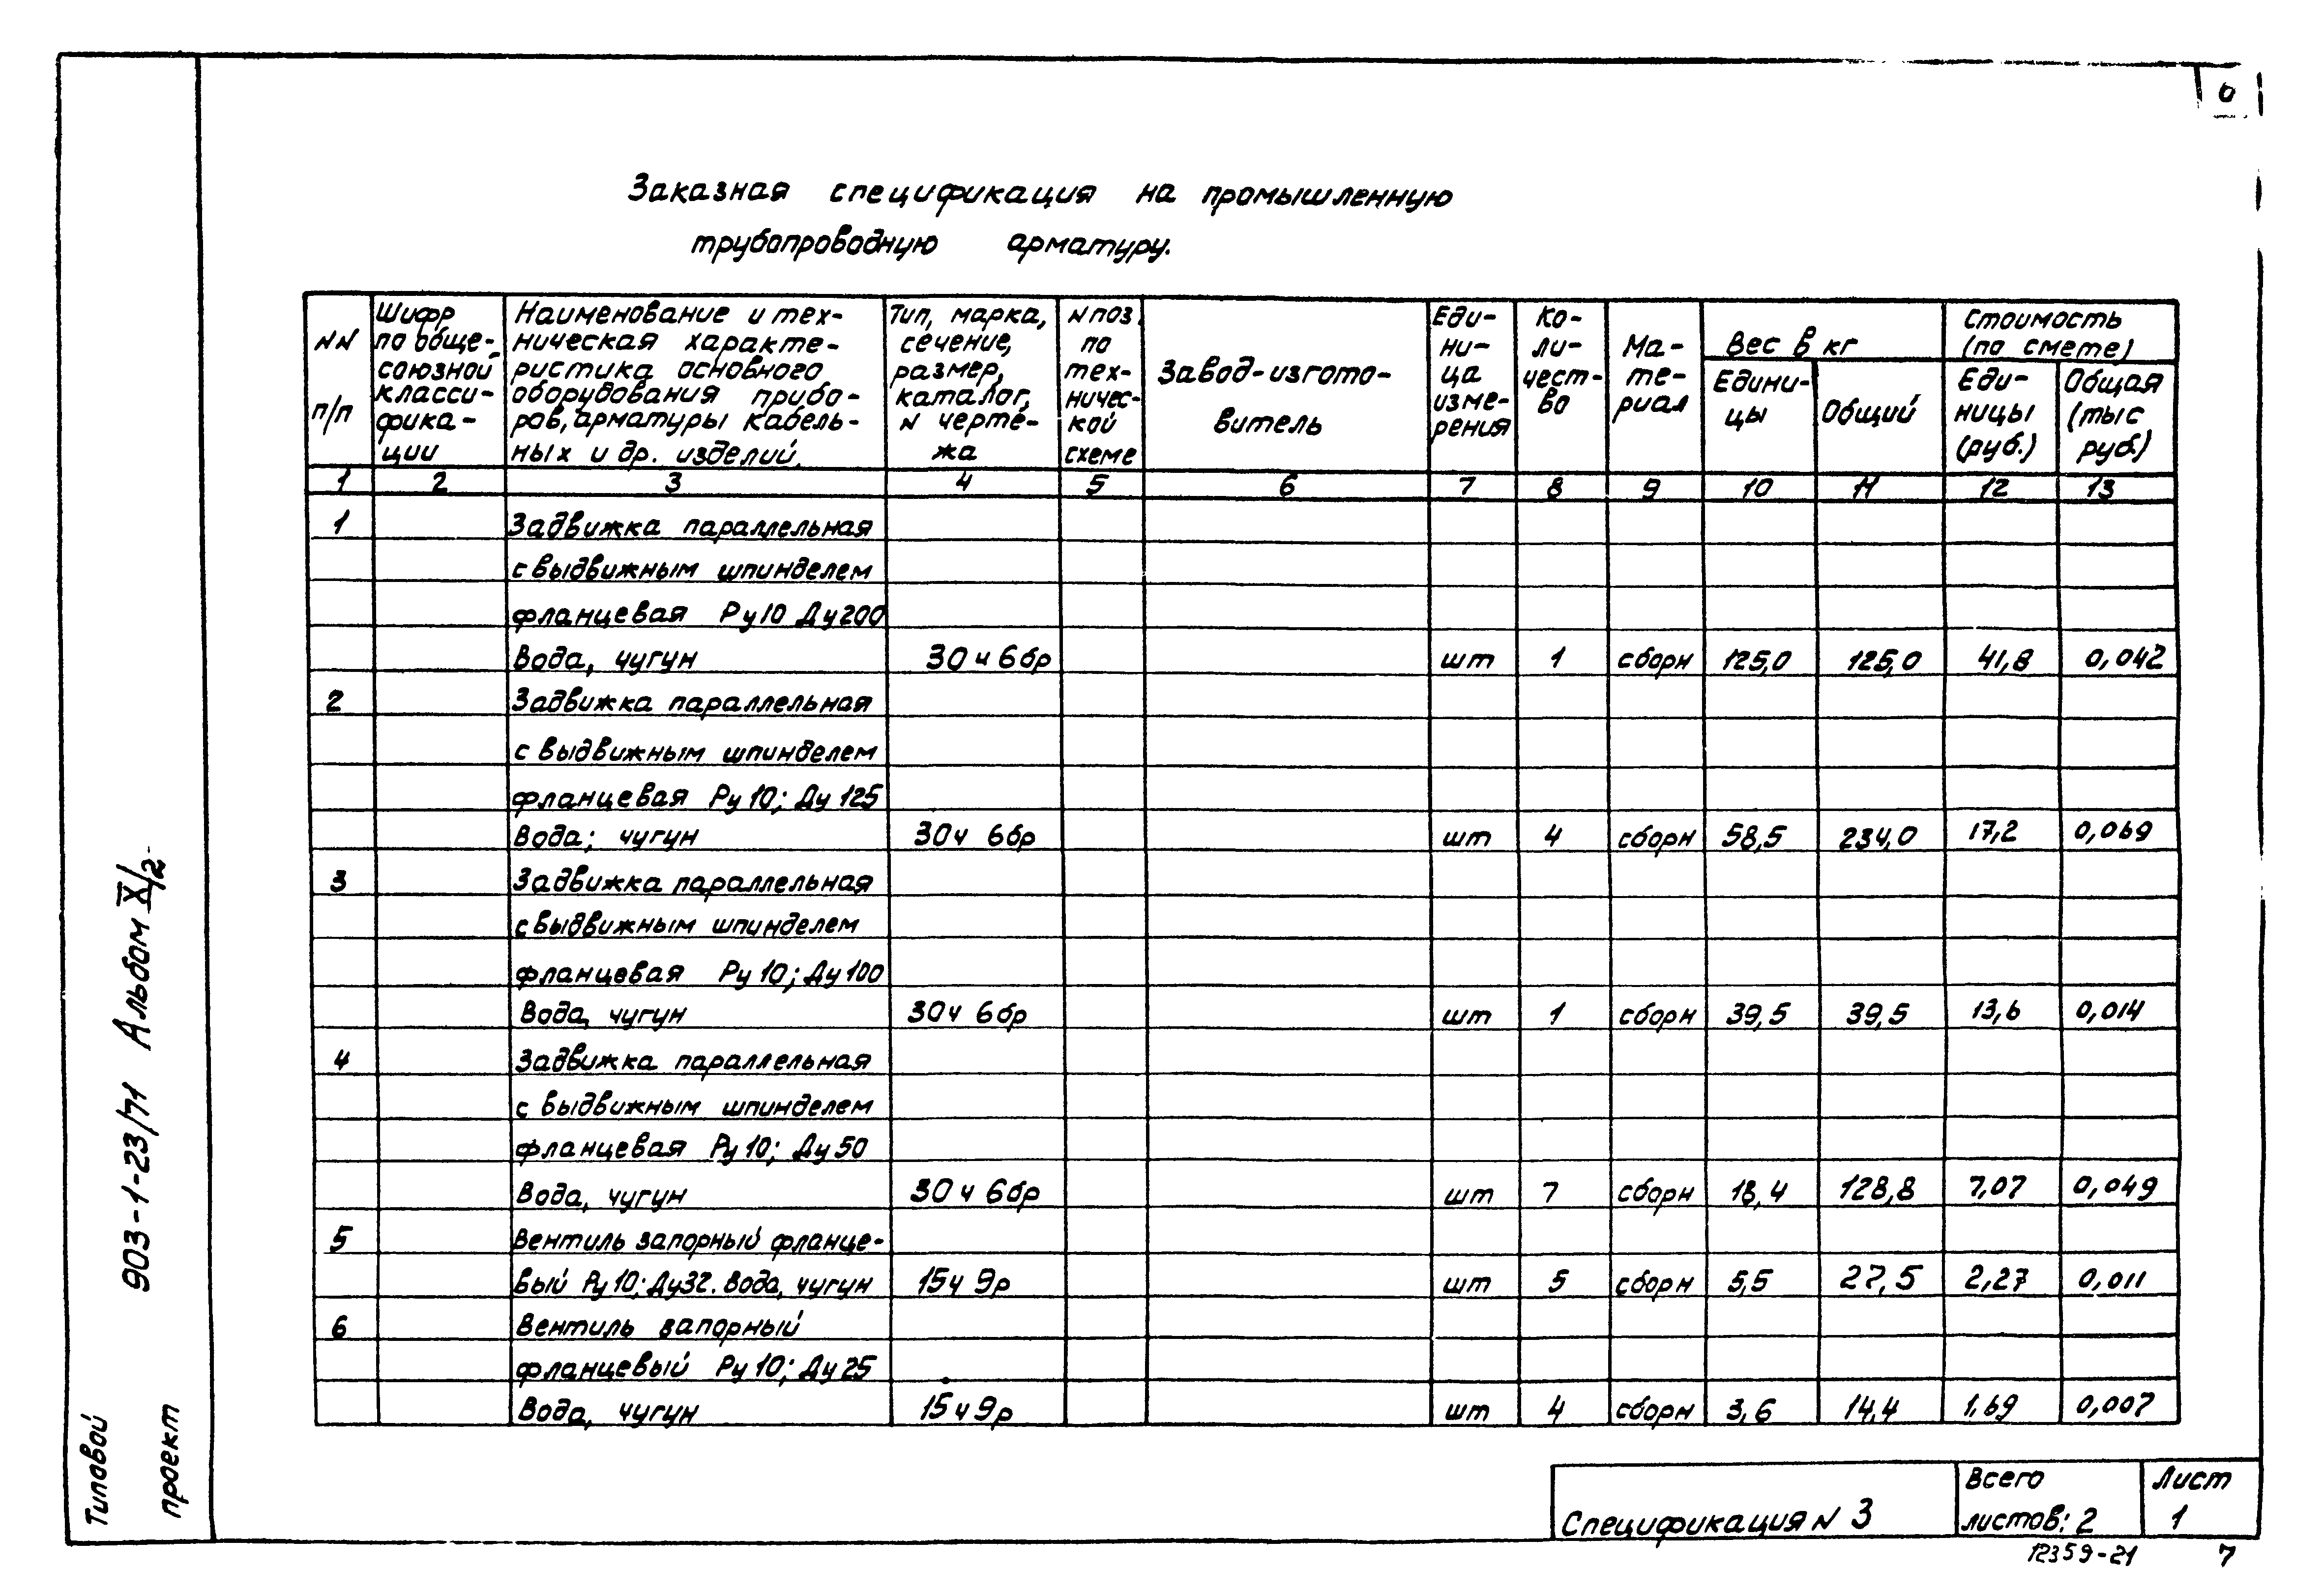 6
Заказная спецификация на промышленную
трубопроводную арматуру.
NN п/п
Шифр по обще-союзной класси-фика-ции
Наименование и тех-ническая характе-ристика основного оборудования прибо-ров, арматуры кабель-ных и др. изделий.
Тип, марка, сечение, размер, каталог, N черте-жа
N поз. по тех-ничес-кой схеме
Завод-изгото-витель
Еди-ни-ца изме-рения
Ко-ли-чест-во
Ма-те-риал
Вес в кг
Едини-цы
Общий
Стоимость (по смете)
Еди-ницы (руб.)
Общая (тыс руб.)
1 2 3 4 5 6 7 8 9 10 11 12 13
1 Задвижка параллельная
с выдвижным шпинделем
фланцевая Ру10 Ду200
Вода, чугун 30ч6бр шт 1 сборн 125,0 125,0 41,8 0,042
2 Задвижка параллельная
с выдвижным шпинделем
фланцевая Ру10; Ду125
Вода; чугун 30ч 6бр шт 4 сборн 58,5 234,0 17,2 0,069
3 Задвижка параллельная
с выдвижным шпинделем
фланцевая Ру10; Ду100
Вода, чугун 30ч 6бр шт 1 сборн 39,5 39,5 13,6 0,014
4 Задвижка параллельная
с выдвижным шпинделем
фланцевая Ру10; Ду50
Вода, чугун 30ч 6бр шт 7 сборн 18,4 128,8 7,07 0,049
5 Вентиль запорный фланце-
вый Ру10; Ду32. Вода, чугун 15ч 9р шт 5 сборн 5,5 27,5 2,27 0,011
6 Вентиль запорный
фланцевый Ру10; Ду25
Вода, чугун 15ч9р шт 4 сборн 3,6 14,4 1,69 0,007
Типовой проект 903-1-23/71 Альбом X/2
Спецификация N 3
Всего листов: 2
Лист 1
12359-21 7